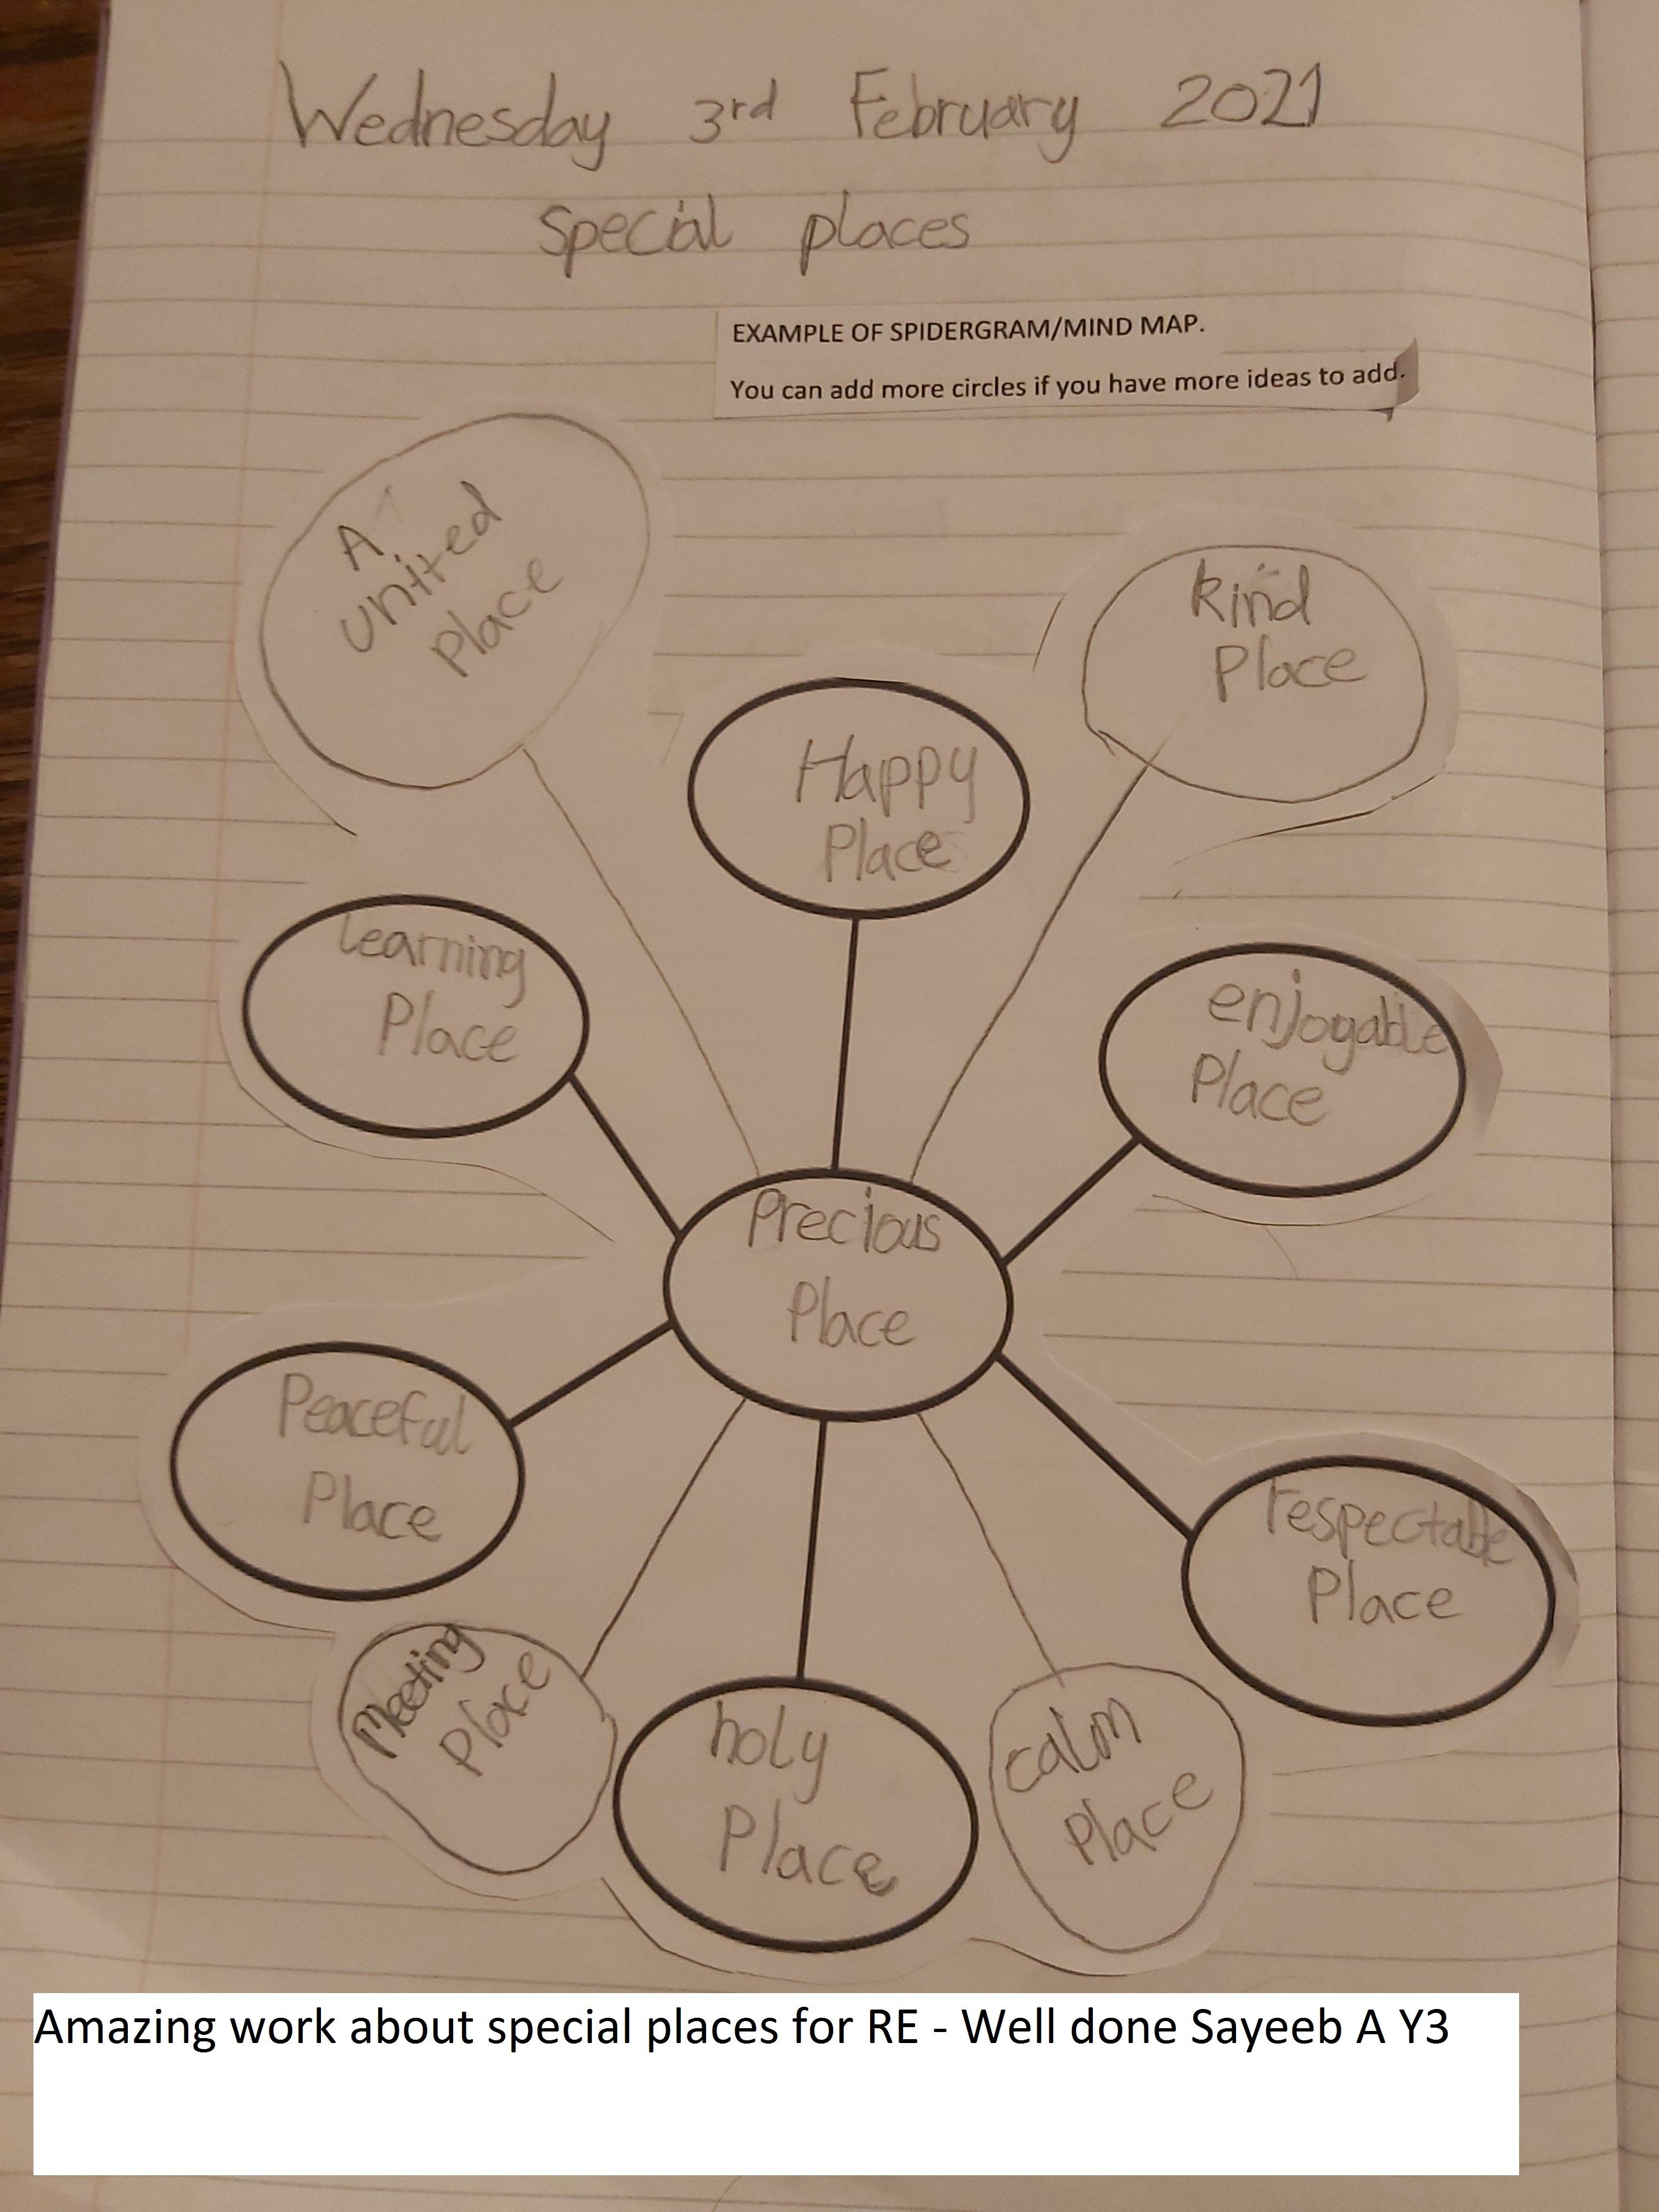 Wednesday 3rd February 2021
special places
EXAMPLE OF SPIDERGRAM/MIND MAP.
You can add more circles if you have more ideas to add.
A
united
place
kind
Place
Happy
Place
learning
Place
enjoyable
Place
Precious
Place
Peaceful
Place
respectable
Place
Meeting
Place
holy
Place
calm
Place
Amazing work about special places for RE - Well done Sayeeb A Y3